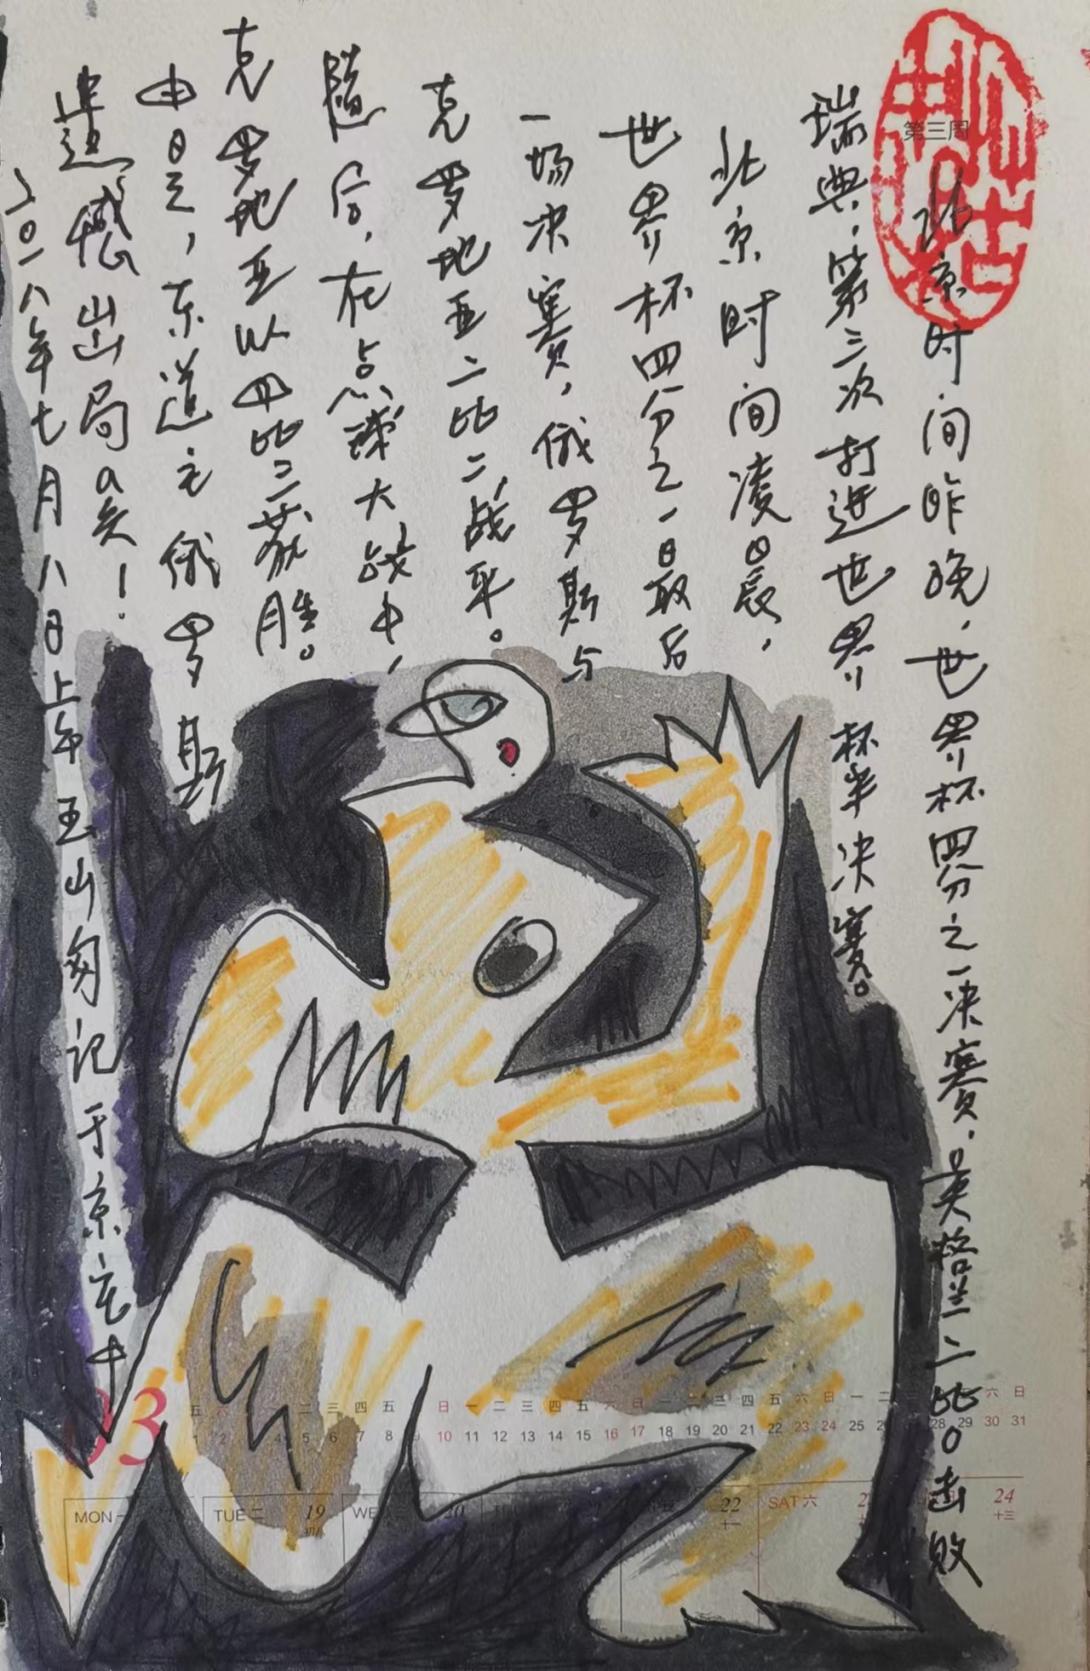 第三周
北京时间昨晚，世界杯四分之一决赛，英格兰二比0击败
瑞典，第三次打进世界杯半决赛。
北京时间凌晨，
世界杯四分之一最后
一场决赛，俄罗斯与
克罗地亚二比二战平。
随后，在点球大战中，
克罗地亚以四比三获胜。
由是，东道主俄罗斯
遗憾出局矣！
二〇一八年七月八日上午玉山匆记于京宅中
03
五 六 二 三 四 五 日 一 二 三 四 五 六 日 一 二 三 四 五 六 日 一 二 六 日
1 2 4 5 6 7 8 9 10 11 12 13 14 15 16 17 18 19 20 21 22 23 24 25 28 29 30 31
MON 一 TUE 二 19 WE 20 22 十一 SAT 六 24 十三